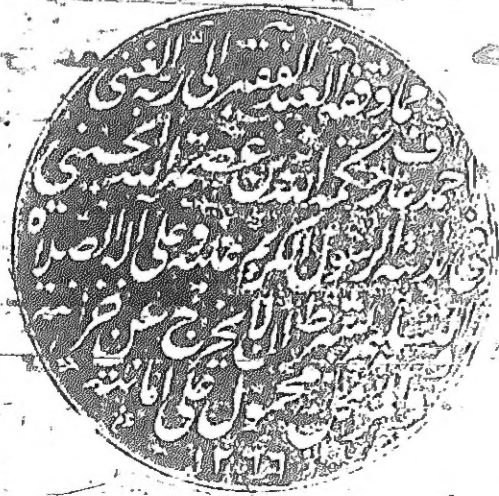 مما وقفه العبد الفقير الى ربه الغنى
احمد عارف حكمة الله بن عصمة الله الحسينى
فى مدينة الرسول الكريم عليه وعلى اله الصلاة
والسلام بشرط ان لا يخرج عن خزانته
والمؤمن محمول على امانته
١٢٦٦